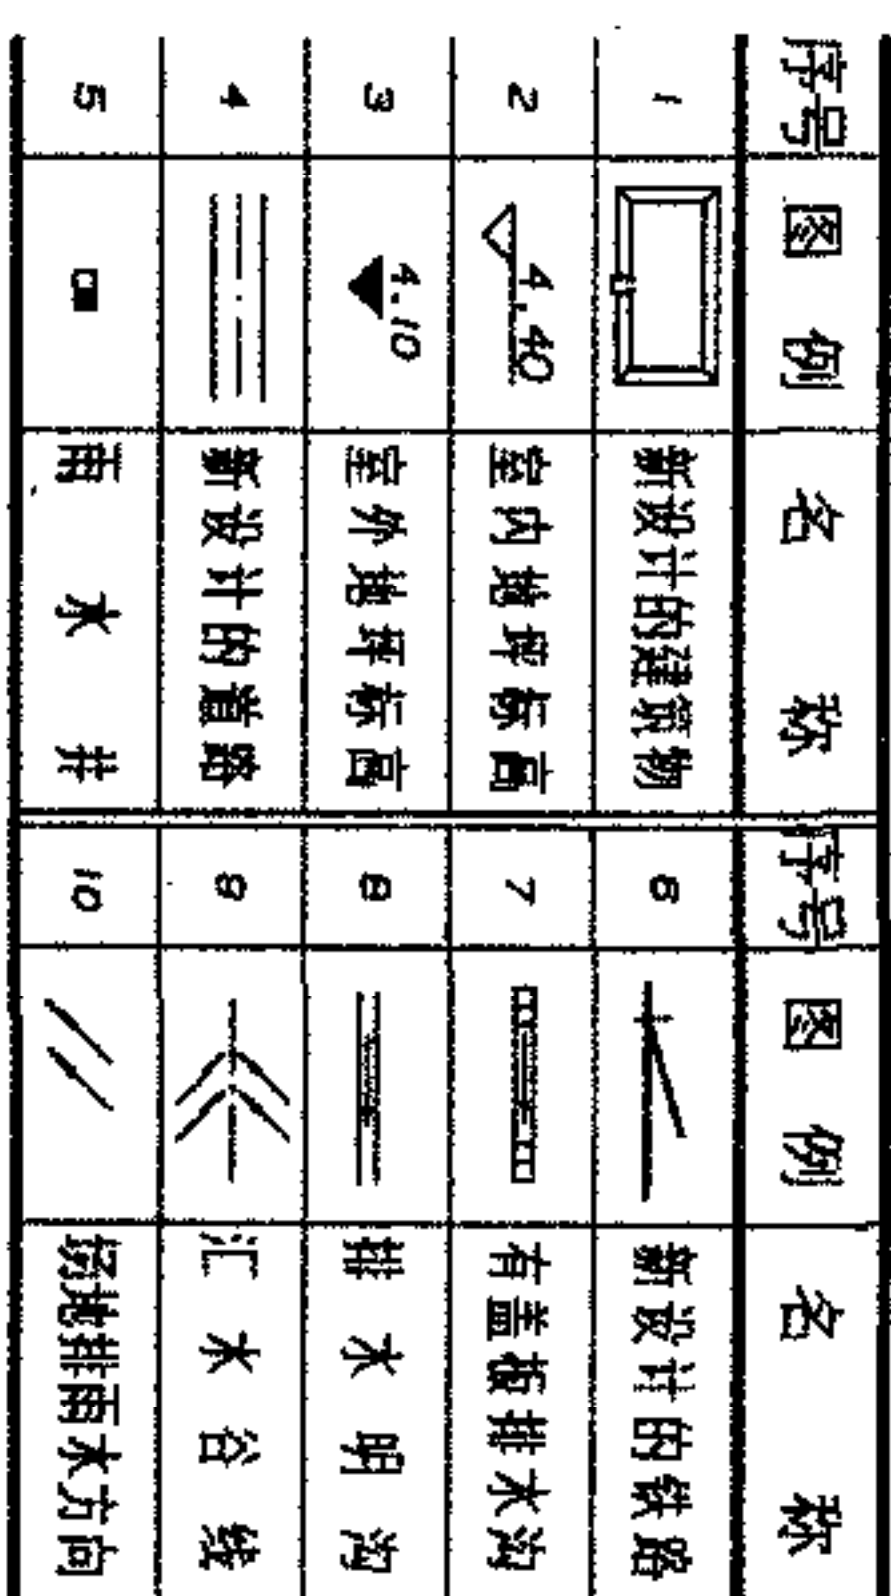 序号 图例 名称 序号 图例 名称
1 新设计的建筑物 6 新设计的铁路
2 4.40 室内地坪标高 7 有盖板排水沟
3 4.10 室外地坪标高 8 排水明沟
4 新设计的道路 9 汇水谷线
5 雨水井 10 场地排雨水方向